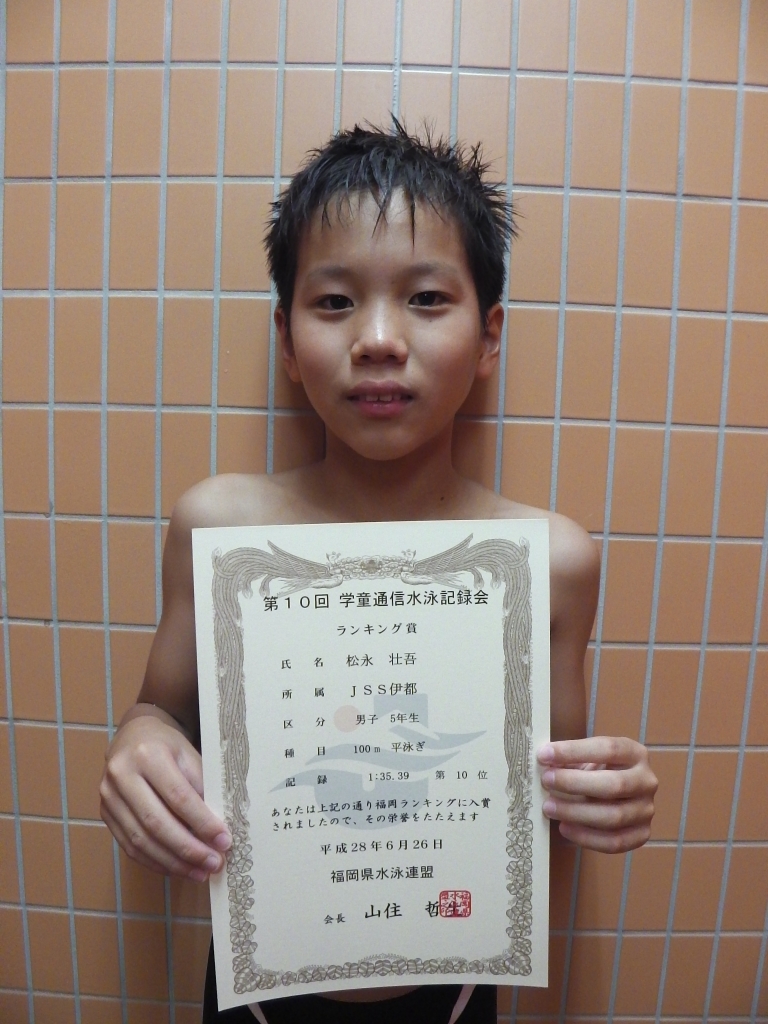 第10回 学童通信水泳記録会
ランキング賞
氏 名 松永 壮吾
所 属 JSS伊都
区 分 男子 5年生
種 目 100m 平泳ぎ
記 録 1:35.39 第 10 位
あなたは上記の通り福岡ランキングに入賞
されましたので、その栄誉をたたえます
平成28年6月26日
福岡県水泳連盟
会長 山住 哲生